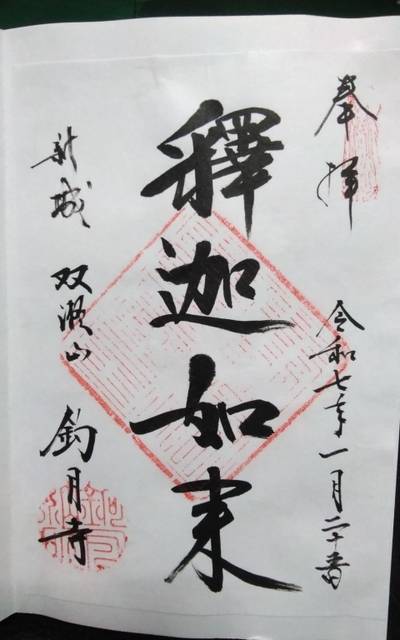 奉拝
令和七年一月二十一日
釋迦如来
新城 双瀬山 釣月寺